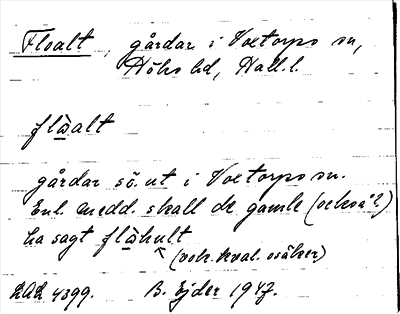 Floalt, gårdar i Voxtorps sn,
Höks hd, Hall. l.
flåalt
gårdar sö. ut i Voxtorps sn.
Enl. medd. skall de gamle (också?)
ha sagt flåhult
(vok. kval. osäker)
LAL 4399. B. Ejder 1947.